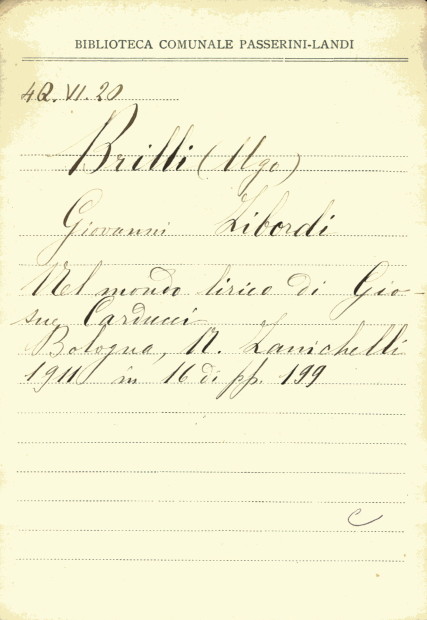 BIBLIOTECA COMUNALE PASSERINI-LANDI
4Q.VI.20
Brilli (Ugo)
Giovanni Zibordi
Nel mondo lirico di Gio-
sue Carducci
Bologna, N. Zanichelli
1911 in 16 di pp. 199
C